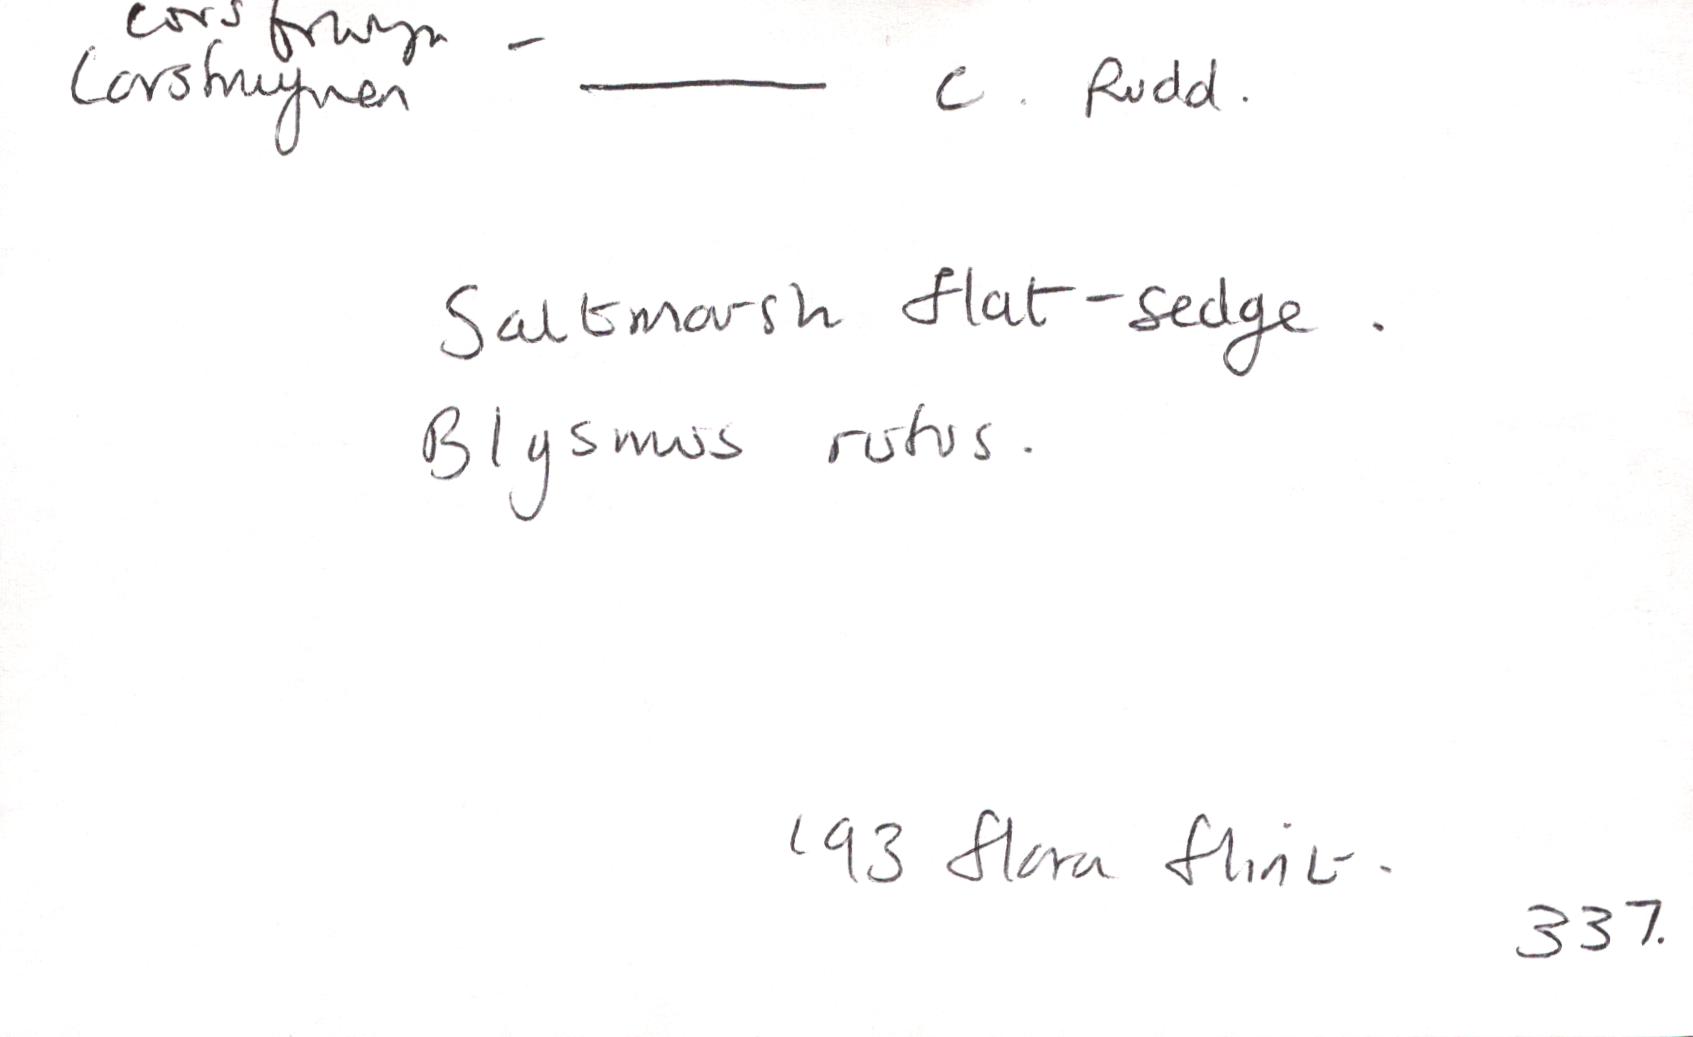 cors frwyn -
Corsfrwynen — C. Rudd.
Saltmarsh flat-sedge.
Blysmus rufus.
'93 flora flint.
337.